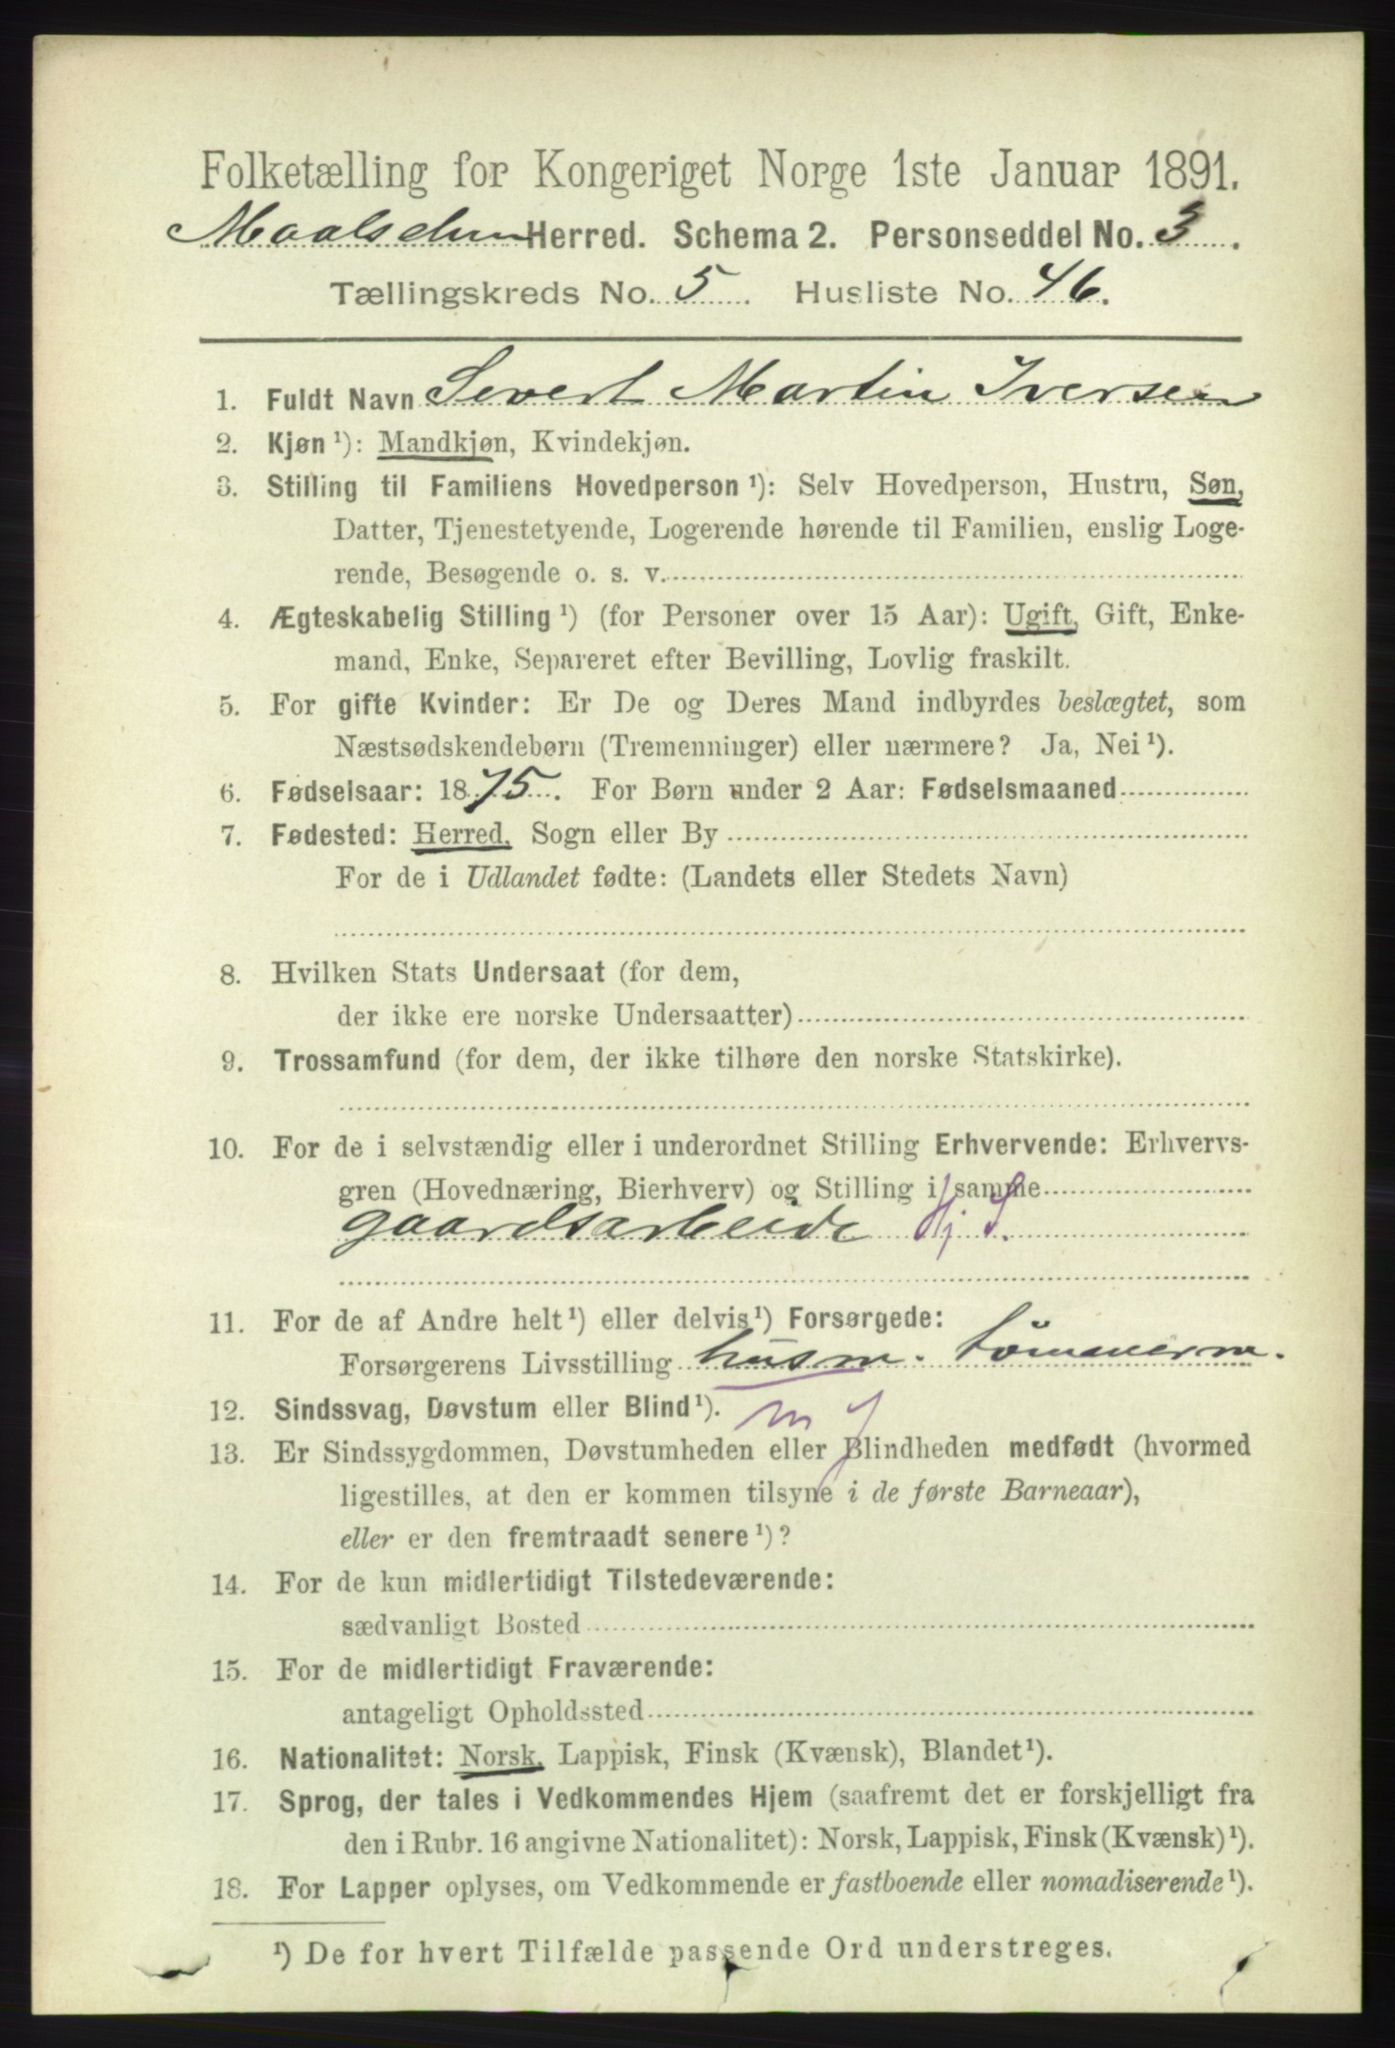 Folketælling for Kongeriget Norge 1ste Januar 1891.
Maalselven Herred. Schema 2. Personseddel No. 3.
Tællingskreds No. 5. Husliste No. 46.
1. Fuldt Navn Severt Martin Iversen
2. Kjøn ¹): Mandkjøn, Kvindekjøn.
3. Stilling til Familiens Hovedperson ¹): Selv Hovedperson, Hustru, Søn,
Datter, Tjenestetyende, Logerende hørende til Familien, enslig Loge-
rende, Besøgende o. s. v.
4. Ægteskabelig Stilling ¹) (for Personer over 15 Aar): Ugift, Gift, Enke-
mand, Enke, Separeret efter Bevilling, Lovlig fraskilt.
5. For gifte Kvinder: Er De og Deres Mand indbyrdes beslægtet, som
Næstsødskendebørn (Tremenninger) eller nærmere? Ja, Nei ¹).
6. Fødselsaar: 1875. For Børn under 2 Aar: Fødselsmaaned
7. Fødested: Herred, Sogn eller By
For de i Udlandet fødte: (Landets eller Stedets Navn)
8. Hvilken Stats Undersaat (for dem,
der ikke ere norske Undersaatter)
9. Trossamfund (for dem, der ikke tilhøre den norske Statskirke).
10. For de i selvstændig eller i underordnet Stilling Erhvervende: Erhvervs-
gren (Hovednæring, Bierhverv) og Stilling i samme
gaardsarbeide Hj S.
11. For de af Andre helt ¹) eller delvis ¹) Forsørgede:
Forsørgerens Livsstilling husm.
12. Sindssvag, Døvstum eller Blind ¹). m f
13. Er Sindssygdommen, Døvstumheden eller Blindheden medfødt (hvormed
ligestilles, at den er kommen tilsyne i de første Barneaar),
eller er den fremtraadt senere ¹)?
14. For de kun midlertidigt Tilstedeværende:
sædvanligt Bosted
15. For de midlertidigt Fraværende:
antageligt Opholdssted
16. Nationalitet: Norsk, Lappisk, Finsk (Kvænsk), Blandet ¹).
17. Sprog, der tales i Vedkommendes Hjem (saafremt det er forskjelligt fra
den i Rubr. 16 angivne Nationalitet): Norsk, Lappisk, Finsk (Kvænsk) ¹).
18. For Lapper oplyses, om Vedkommende er fastboende eller nomadiserende ¹).
¹) De for hvert Tilfælde passende Ord understreges.